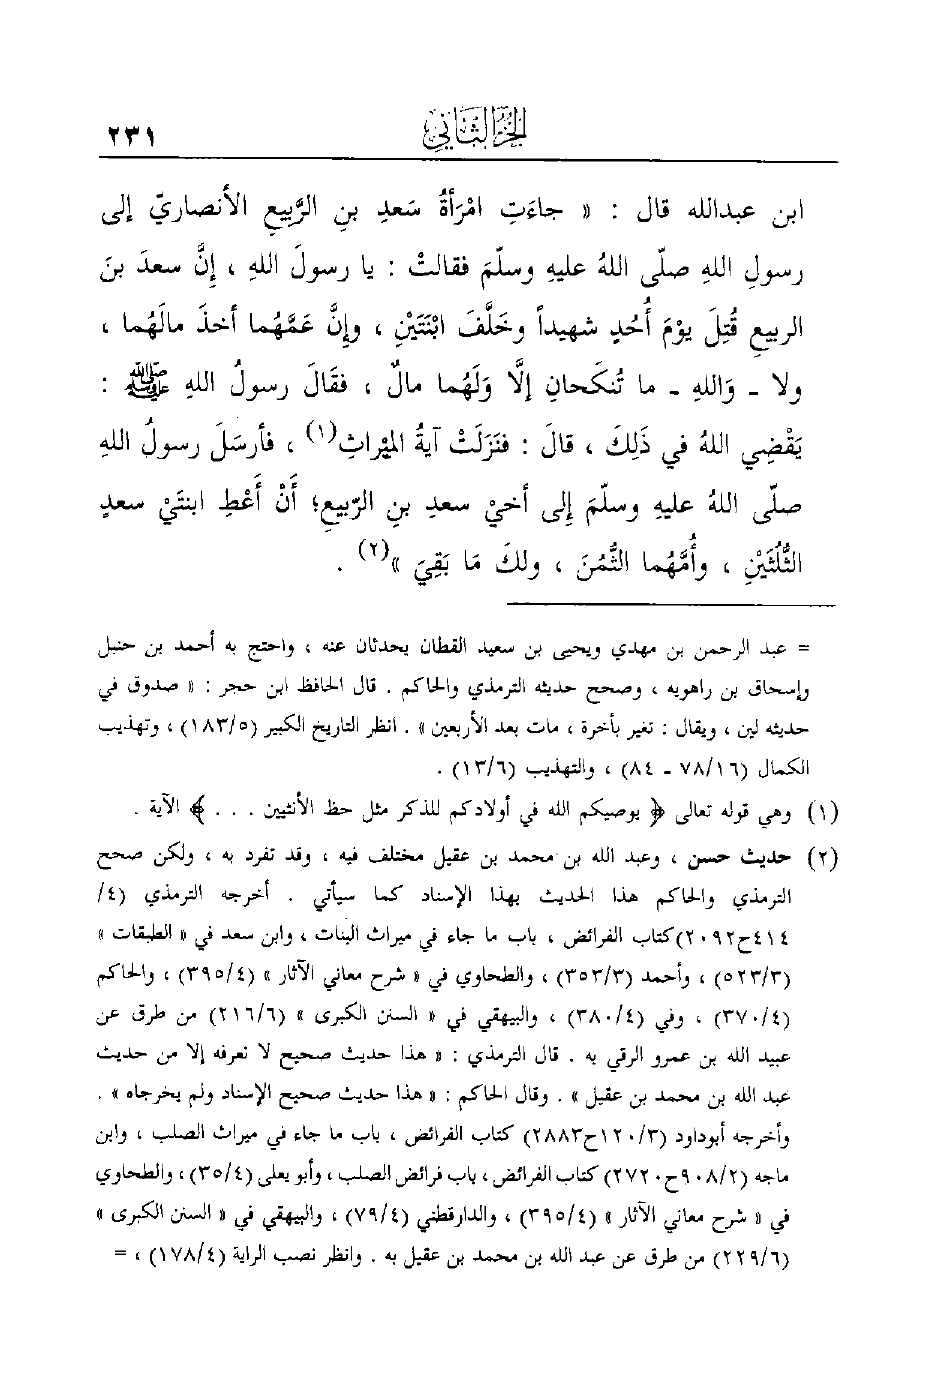 الجزء الثاني
٢٣١
ابن عبدالله قال : « جاءَتِ امْرَأةُ سَعدِ بنِ الرَّبِيعِ الأنصاريّ إلى
رسولِ اللهِ صلّى اللهُ عليهِ وسلّمَ فقالتْ : يا رسولَ اللهِ ، إنَّ سعدَ بنَ
الربيعِ قُتِلَ يوْمَ أُحُدٍ شهيداً وخَلَّفَ ابْنَتَيْنِ ، وإنَّ عَمَّهُما أخذَ مالَهُما ،
ولا ـ وَاللهِ ـ ما تُنكَحانِ إلَّا وَلَهُما مالٌ ، فقَالَ رسولُ اللهِ ﷺ :
يَقْضِي اللهُ في ذَلِكَ ، قالَ : فنَزَلَتْ آيةُ الميْراثِ(١) ، فأرسَلَ رسولُ اللهِ
صلّى اللهُ عليهِ وسلّمَ إلى أخيْ سعدِ بنِ الرّبيعِ؛ أَنْ أَعْطِ ابنتَيْ سعدٍ
الثُّلُثَيْنِ ، وأُمَّهُما الثُّمُنَ ، ولكَ مَا بَقِيَ »(٢) .
= عبد الرحمن بن مهدي ويحيى بن سعيد القطان يحدثان عنه ، واحتج به أحمد بن حنبل
وإسحاق بن راهويه ، وصحح حديثه الترمذي والحاكم . قال الحافظ ابن حجر : « صدوق في
حديثه لين ، ويقال : تغير بأخرة ، مات بعد الأربعين » . انظر التاريخ الكبير (١٨٣/٥) ، وتهذيب
الكمال (٧٨/١٦ ـ ٨٤) ، والتهذيب (١٣/٦) .
(١) وهي قوله تعالى ﴿ يوصيكم الله في أولادكم للذكر مثل حظ الأنثيين . . . ﴾ الآية .
(٢) حديث حسن ، وعبد الله بن محمد بن عقيل مختلف فيه ، وقد تفرد به ، ولكن صحح
الترمذي والحاكم هذا الحديث بهذا الإسناد كما سيأتي . أخرجه الترمذي (٤/
٤١٤ح٢٠٩٢)كتاب الفرائض ، باب ما جاء في ميراث البنات ، وابن سعد في « الطبقات »
(٥٢٣/٣) ، وأحمد (٣٥٣/٣) ، والطحاوي في « شرح معاني الآثار » (٣٩٥/٤) ، والحاكم
(٣٧٠/٤) ، وفي (٣٨٠/٤) ، والبيهقي في « السنن الكبرى » (٢١٦/٦) من طرق عن
عبيد الله بن عمرو الرقي به . قال الترمذي : « هذا حديث صحيح لا نعرفه إلا من حديث
عبد الله بن محمد بن عقيل » . وقال الحاكم : « هذا حديث صحيح الإسناد ولم يخرجاه » .
وأخرجه أبوداود (١٢٠/٣ح٢٨٨٣) كتاب الفرائض ، باب ما جاء في ميراث الصلب ، وابن
ماجه (٩٠٨/٢ح٢٧٢٠) كتاب الفرائض ، باب فرائض الصلب ، وأبو يعلى (٣٥/٤) ، والطحاوي
في « شرح معاني الآثار » (٣٩٥/٤) ، والدارقطني (٧٩/٤) ، والبيهقي في « السنن الكبرى »
(٢٢٩/٦) من طرق عن عبد الله بن محمد بن عقيل به . وانظر نصب الراية (١٧٨/٤) ، =